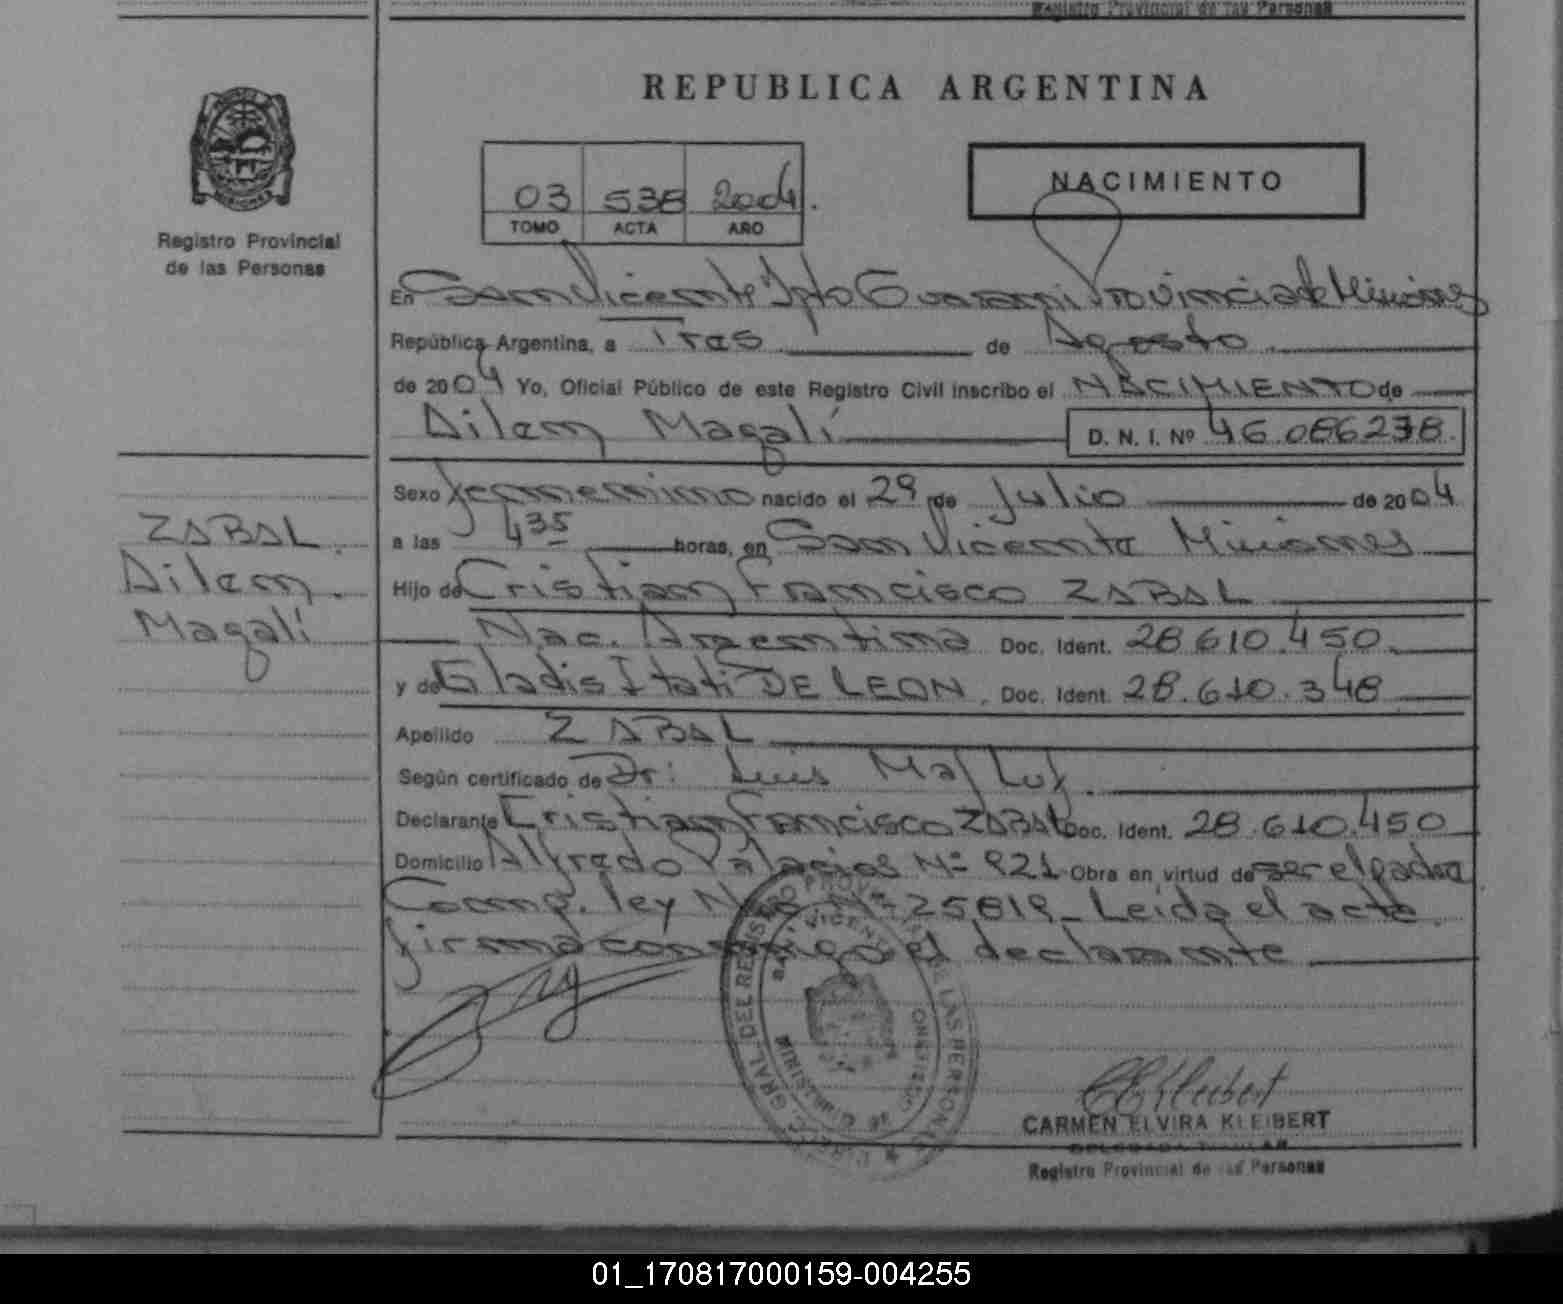 Registro Provincial de las Personas
REPUBLICA ARGENTINA
NACIMIENTO
03 538 2004.
TOMO ACTA AÑO
Registro Provincial
de las Personas
En San Vicente Dpto Guarani Provincia de Misiones
República Argentina, a Tres de Agosto
de 2004 Yo, Oficial Público de este Registro Civil inscribo el NACIMIENTO de
Ailen Magalí D. N. I. Nº 46.086238.
Sexo femenino nacido el 29 de Julio de 2004
a las 4 35 horas, en San Vicente Misiones
Hijo de Cristian Francisco ZABAL
Nac. Argentina Doc. Ident. 28 610.450.
y de Gladis Itati DE LEON, Doc. Ident. 28.610.348
Apellido ZABAL
Según certificado de Dr: Luis
Declarante Cristian Francisco ZABAL Doc. Ident. 28.610.450
Domicilio Alfredo Palacios Nº 921 Obra en virtud de ser el padre
Comp. ley Nac. Nº 25819_ Leida el acta
firma conmigo el declarante
ZABAL.
Ailen.
Magalí
CARMEN ELVIRA KLEIBERT
DELEGADA TITULAR
Registro Provincial de las Personas
01_170817000159-004255